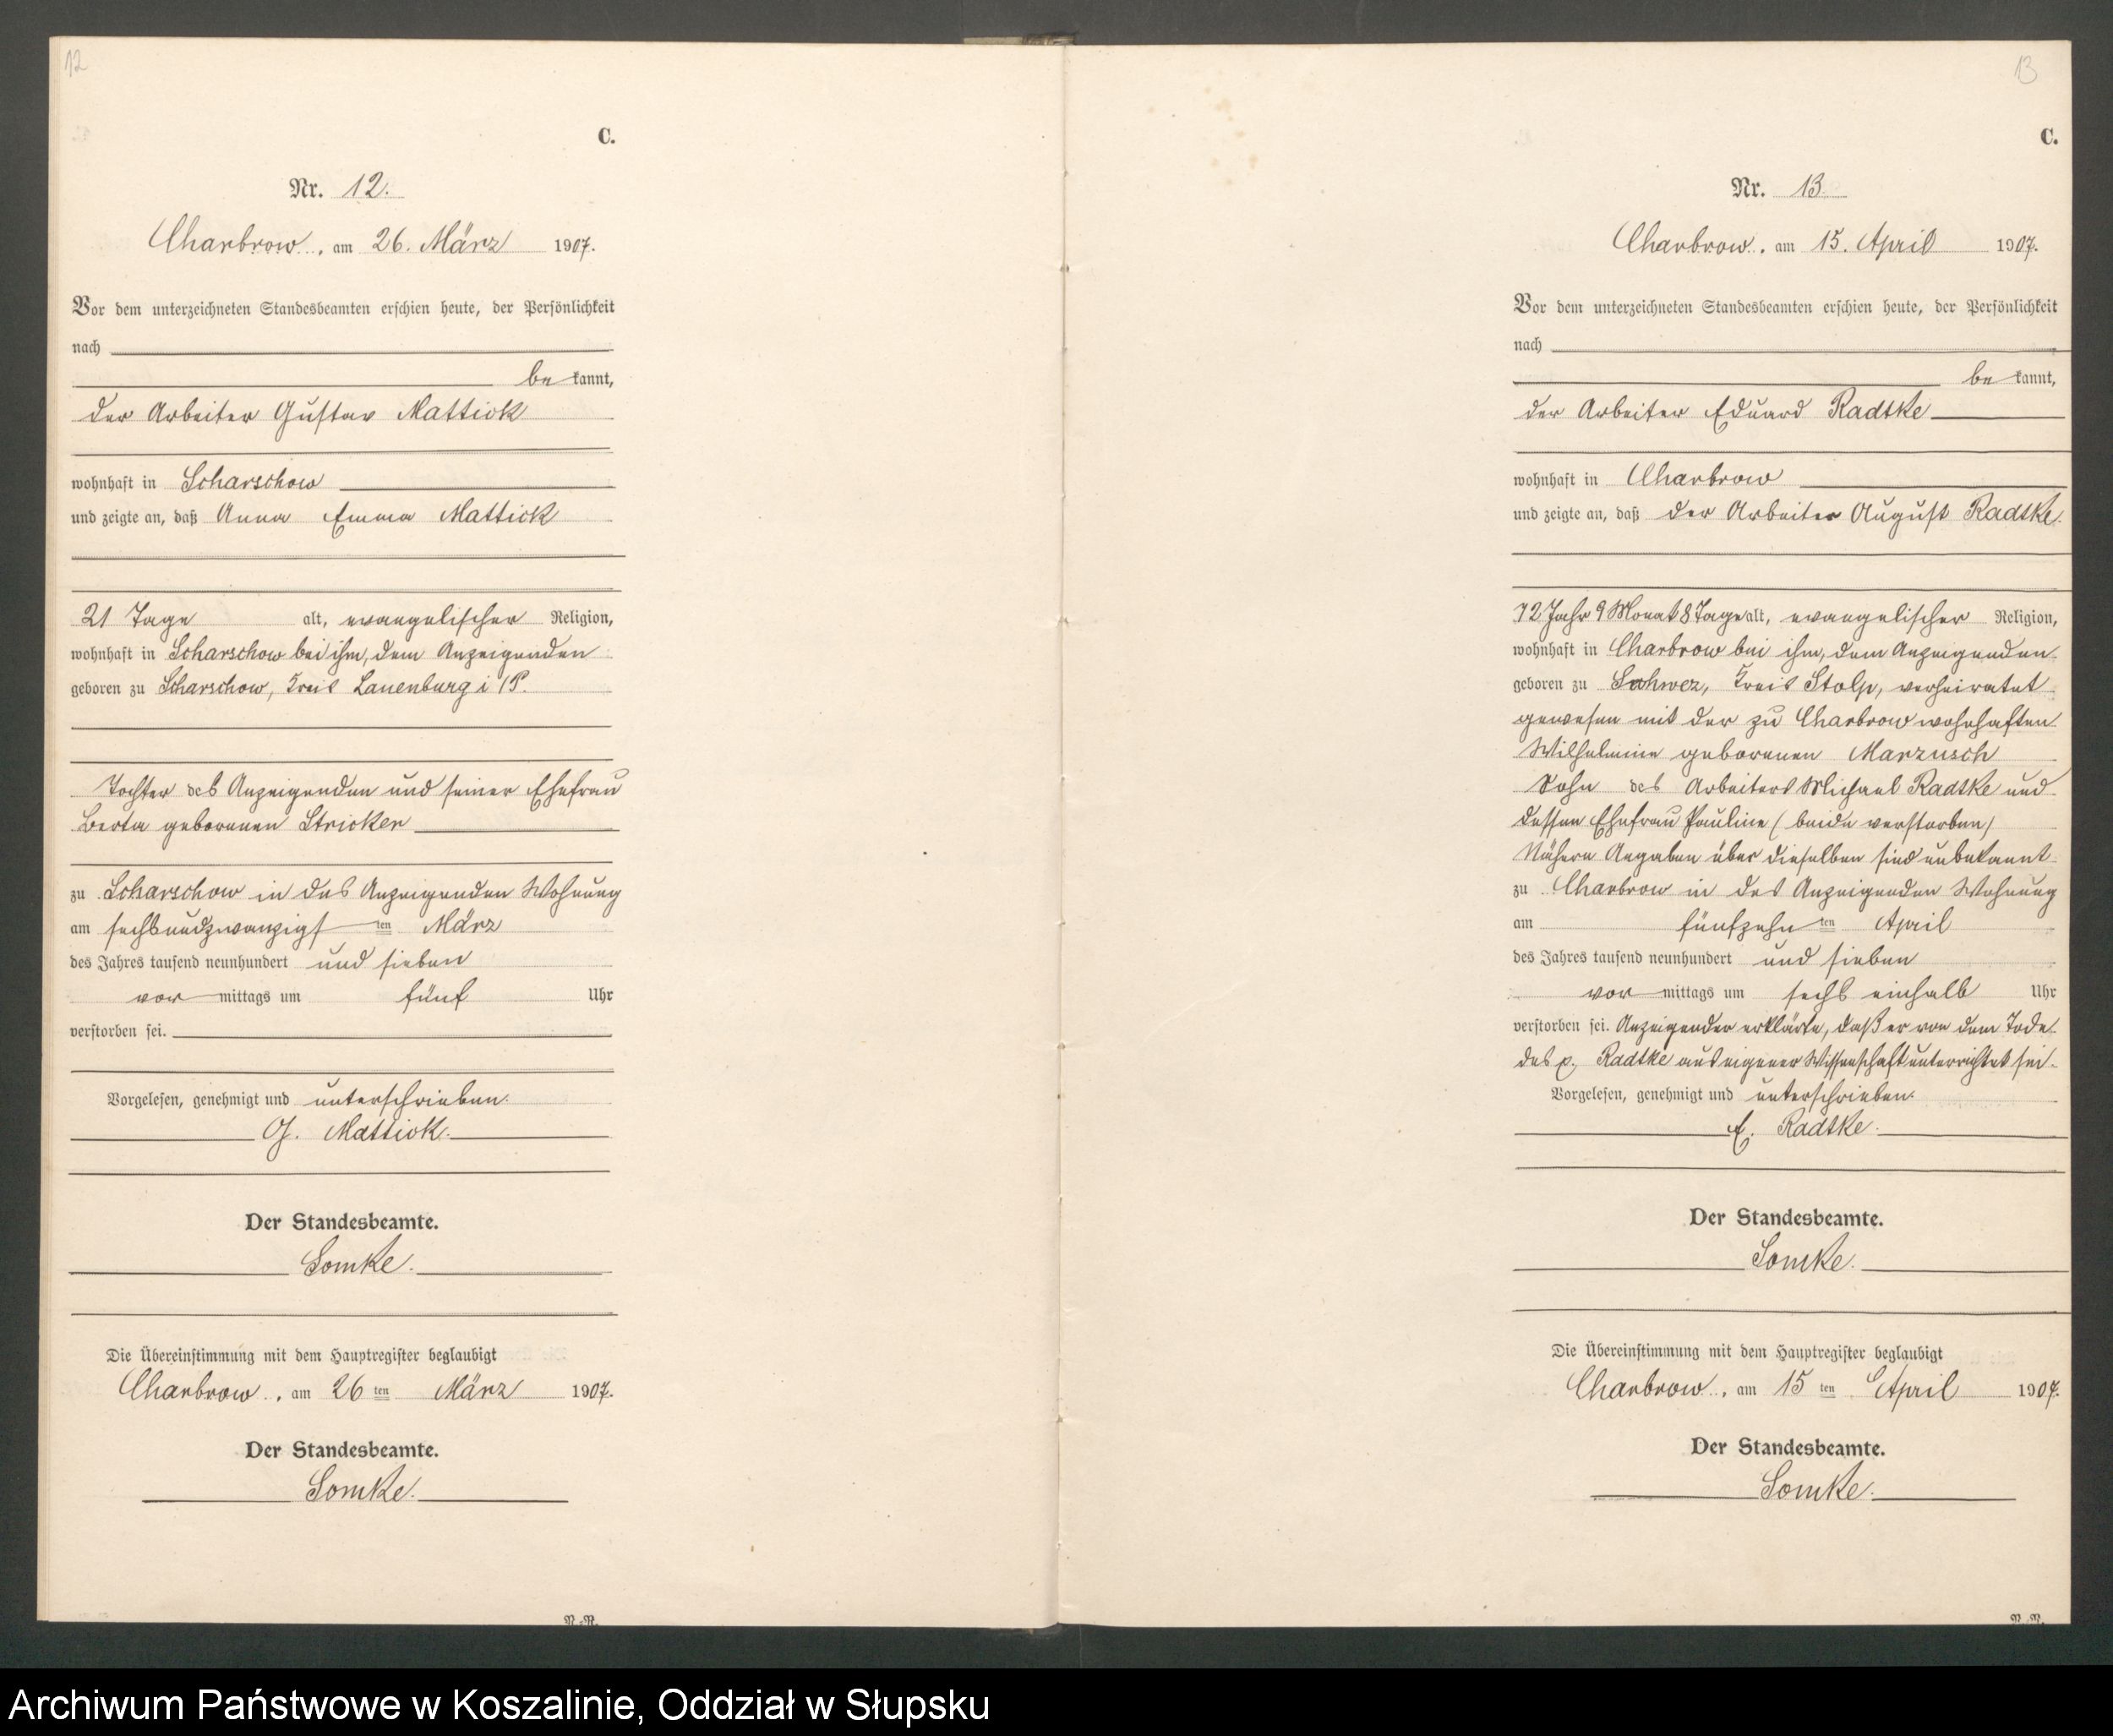 12
C.
Nr. 12.
Charbrow, am 26. März 1907.
Vor dem unterzeichneten Standesbeamten erschien heute, der Persönlichkeit
nach
be kannt,
der Arbeiter Gustav Mattick
wohnhaft in Scharschow
und zeigte an, daß Anna Emma Mattick
21 Tage alt, evangelischer Religion,
wohnhaft in Scharschow bei ihm, dem Anzeigenden
geboren zu Scharschow, Kreis Lauenburg i/P.
Tochter des Anzeigenden und seiner Ehefrau
Berta geborenen Stricker
zu Scharschow in des Anzeigenden Wohnung
am sechsundzwanzigsten März
des Jahres tausend neunhundert und sieben
vor mittags um fünf Uhr
verstorben sei.
Vorgelesen, genehmigt und unterschrieben.
G. Mattick.
Der Standesbeamte.
Somke.
Die Übereinstimmung mit dem Hauptregister beglaubigt
Charbrow, am 26 ten März 1907.
Der Standesbeamte.
Somke.
13
C.
Nr. 13.
Charbrow, am 15. April 1907.
Vor dem unterzeichneten Standesbeamten erschien heute, der Persönlichkeit
nach
be kannt,
der Arbeiter Eduard Radtke
wohnhaft in Charbrow
und zeigte an, daß der Arbeiter August Radtke
72 Jahr 9 Monat 8 Tage alt, evangelischer Religion,
wohnhaft in Charbrow bei ihm, dem Anzeigenden
geboren zu Kreis Stolp, verheiratet
gewesen mit der zu Charbrow wohnhaften
Wilhelmine geborenen Marzusch
Sohn des Arbeiters Michael Radtke und
dessen Ehefrau Pauline (beide verstorben)
Nähere Angaben über dieselben sind unbekannt
zu Charbrow in des Anzeigenden Wohnung
am fünfzehn ten April
des Jahres tausend neunhundert und sieben
vor mittags um sechs einhalb Uhr
verstorben sei. Anzeigender erklärte, daß er von dem Tode
des p. Radtke aus eigener Wissenschaft unterrichtet sei.
Vorgelesen, genehmigt und unterschrieben.
E. Radtke.
Der Standesbeamte.
Somke.
Die Übereinstimmung mit dem Hauptregister beglaubigt
Charbrow, am 15 ten April 1907.
Der Standesbeamte.
Somke.
Archiwum Państwowe w Koszalinie, Oddział w Słupsku